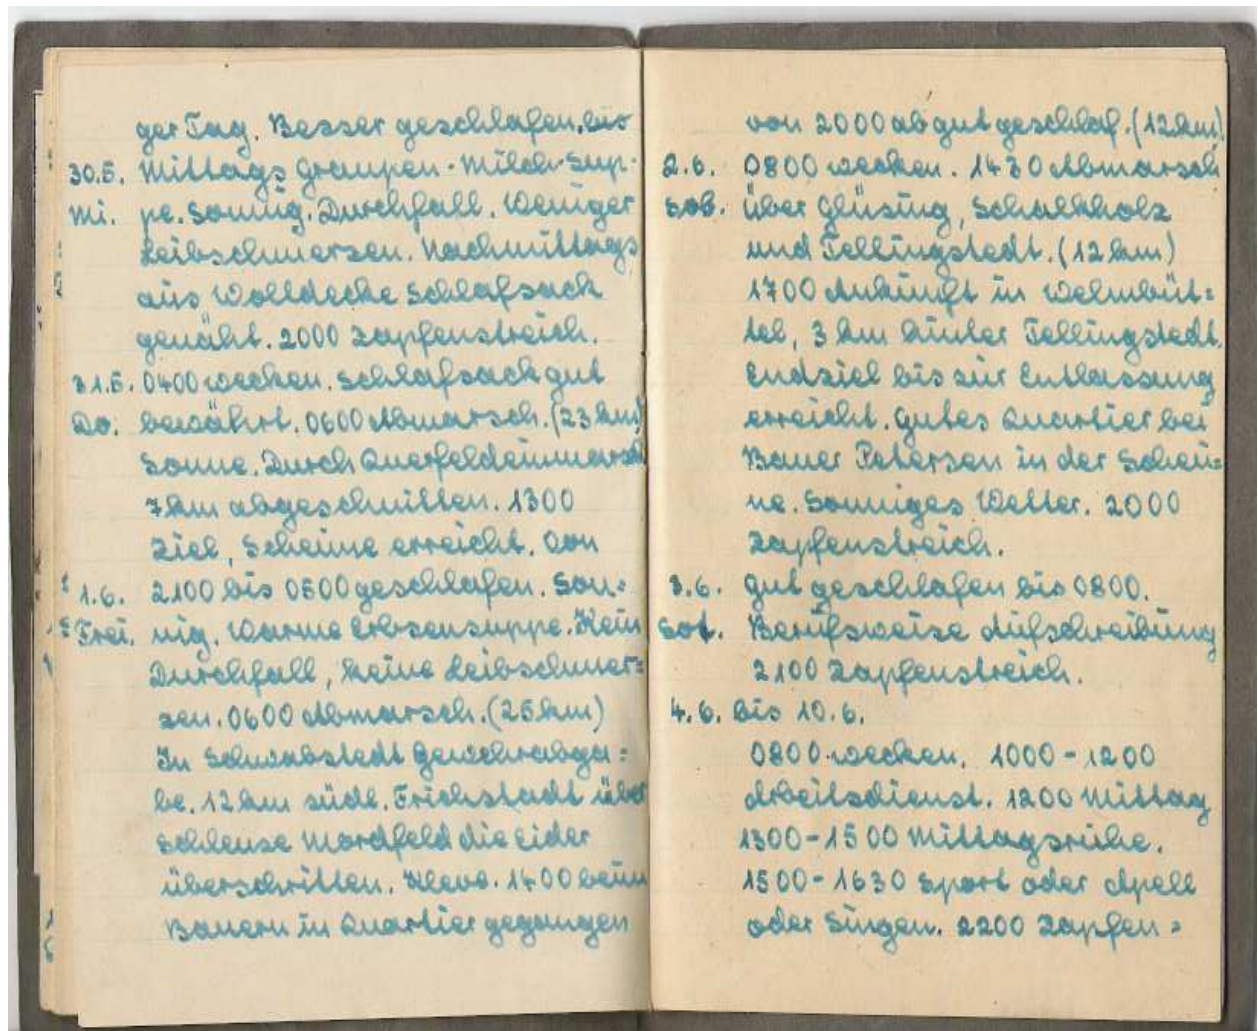 ger Tag. Besser geschlafen, bis
30.5. Mittags Graupen-Milch-Sup-
Mi. pe. Sonnig. Durchfall. Weniger
Leibschmerzen. Nachmittags
aus Wolldecke Schlafsack
genäht. 2000 Zapfenstreich.
31.5. 0400 wecken. Schlafsack gut
Do. bewährt. 0600 Abmarsch. (23 km)
Sonne. Durch Querfeldeinmarsch
7 km abgeschnitten. 1300
Ziel, Scheune erreicht. Von
1.6. 2100 bis 0500 geschlafen. Son=
Frei. nig. Warme Erbsensuppe. Kein
Durchfall, keine Leibschmer=
zen. 0600 Abmarsch. (25 km)
In Schwabstedt Gewehrabga=
be. 12 km südl. Frichstadt über
Schleuse Nordfeld die Eider
überschritten. Kleve. 1400 beim
Bauern in Quartier gegangen
von 2000 ab gut geschlaf. (12 km)
2.6. 0800 wecken. 1430 Abmarsch
Sob. über Glüsing, Schalkholz
und Tellingstedt. (12 km)
1700 Ankunft in Welmbüt=
tel, 3 km hinter Tellingstedt.
Endziel bis zur Entlassung
erreicht. Gutes Quartier bei
Bauer Petersen in der Scheu=
ne. Sonniges Wetter. 2000
Zapfenstreich.
3.6. Gut geschlafen bis 0800.
Berufsweise Aufschreibung
2100 Zapfenstreich.
4.6. bis 10.6.
0800 wecken. 1000-1200
Arbeitsdienst. 1200 Mittag
1300-1500 Mittagsruhe.
1500-1630 Sport oder Apell
oder Singen. 2200 Zapfen=